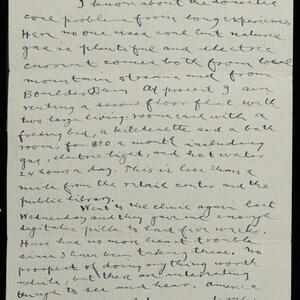 I know about the domestic
coal problem from long experience.
Here no one uses coal but natural
gas is plentiful and electric
current comes both from local
mountain streams and from
Boulder Dam. At present I am
renting a second floor flat with
two large living rooms each with a
folding bed, a kitchenette and a bath
room, for $20 a month including
gas, electric light, and hot water
24 hours a day. This is less than a
mile from the retail center and the
public library.
Went to the clinic again last
Wednesday and they gave me enough
digitalis pills to last five weeks.
Have had no more heart trouble
since I have been taking these. No
prospect of doing anything worth
while, but there are interesting
things to see and hear. America